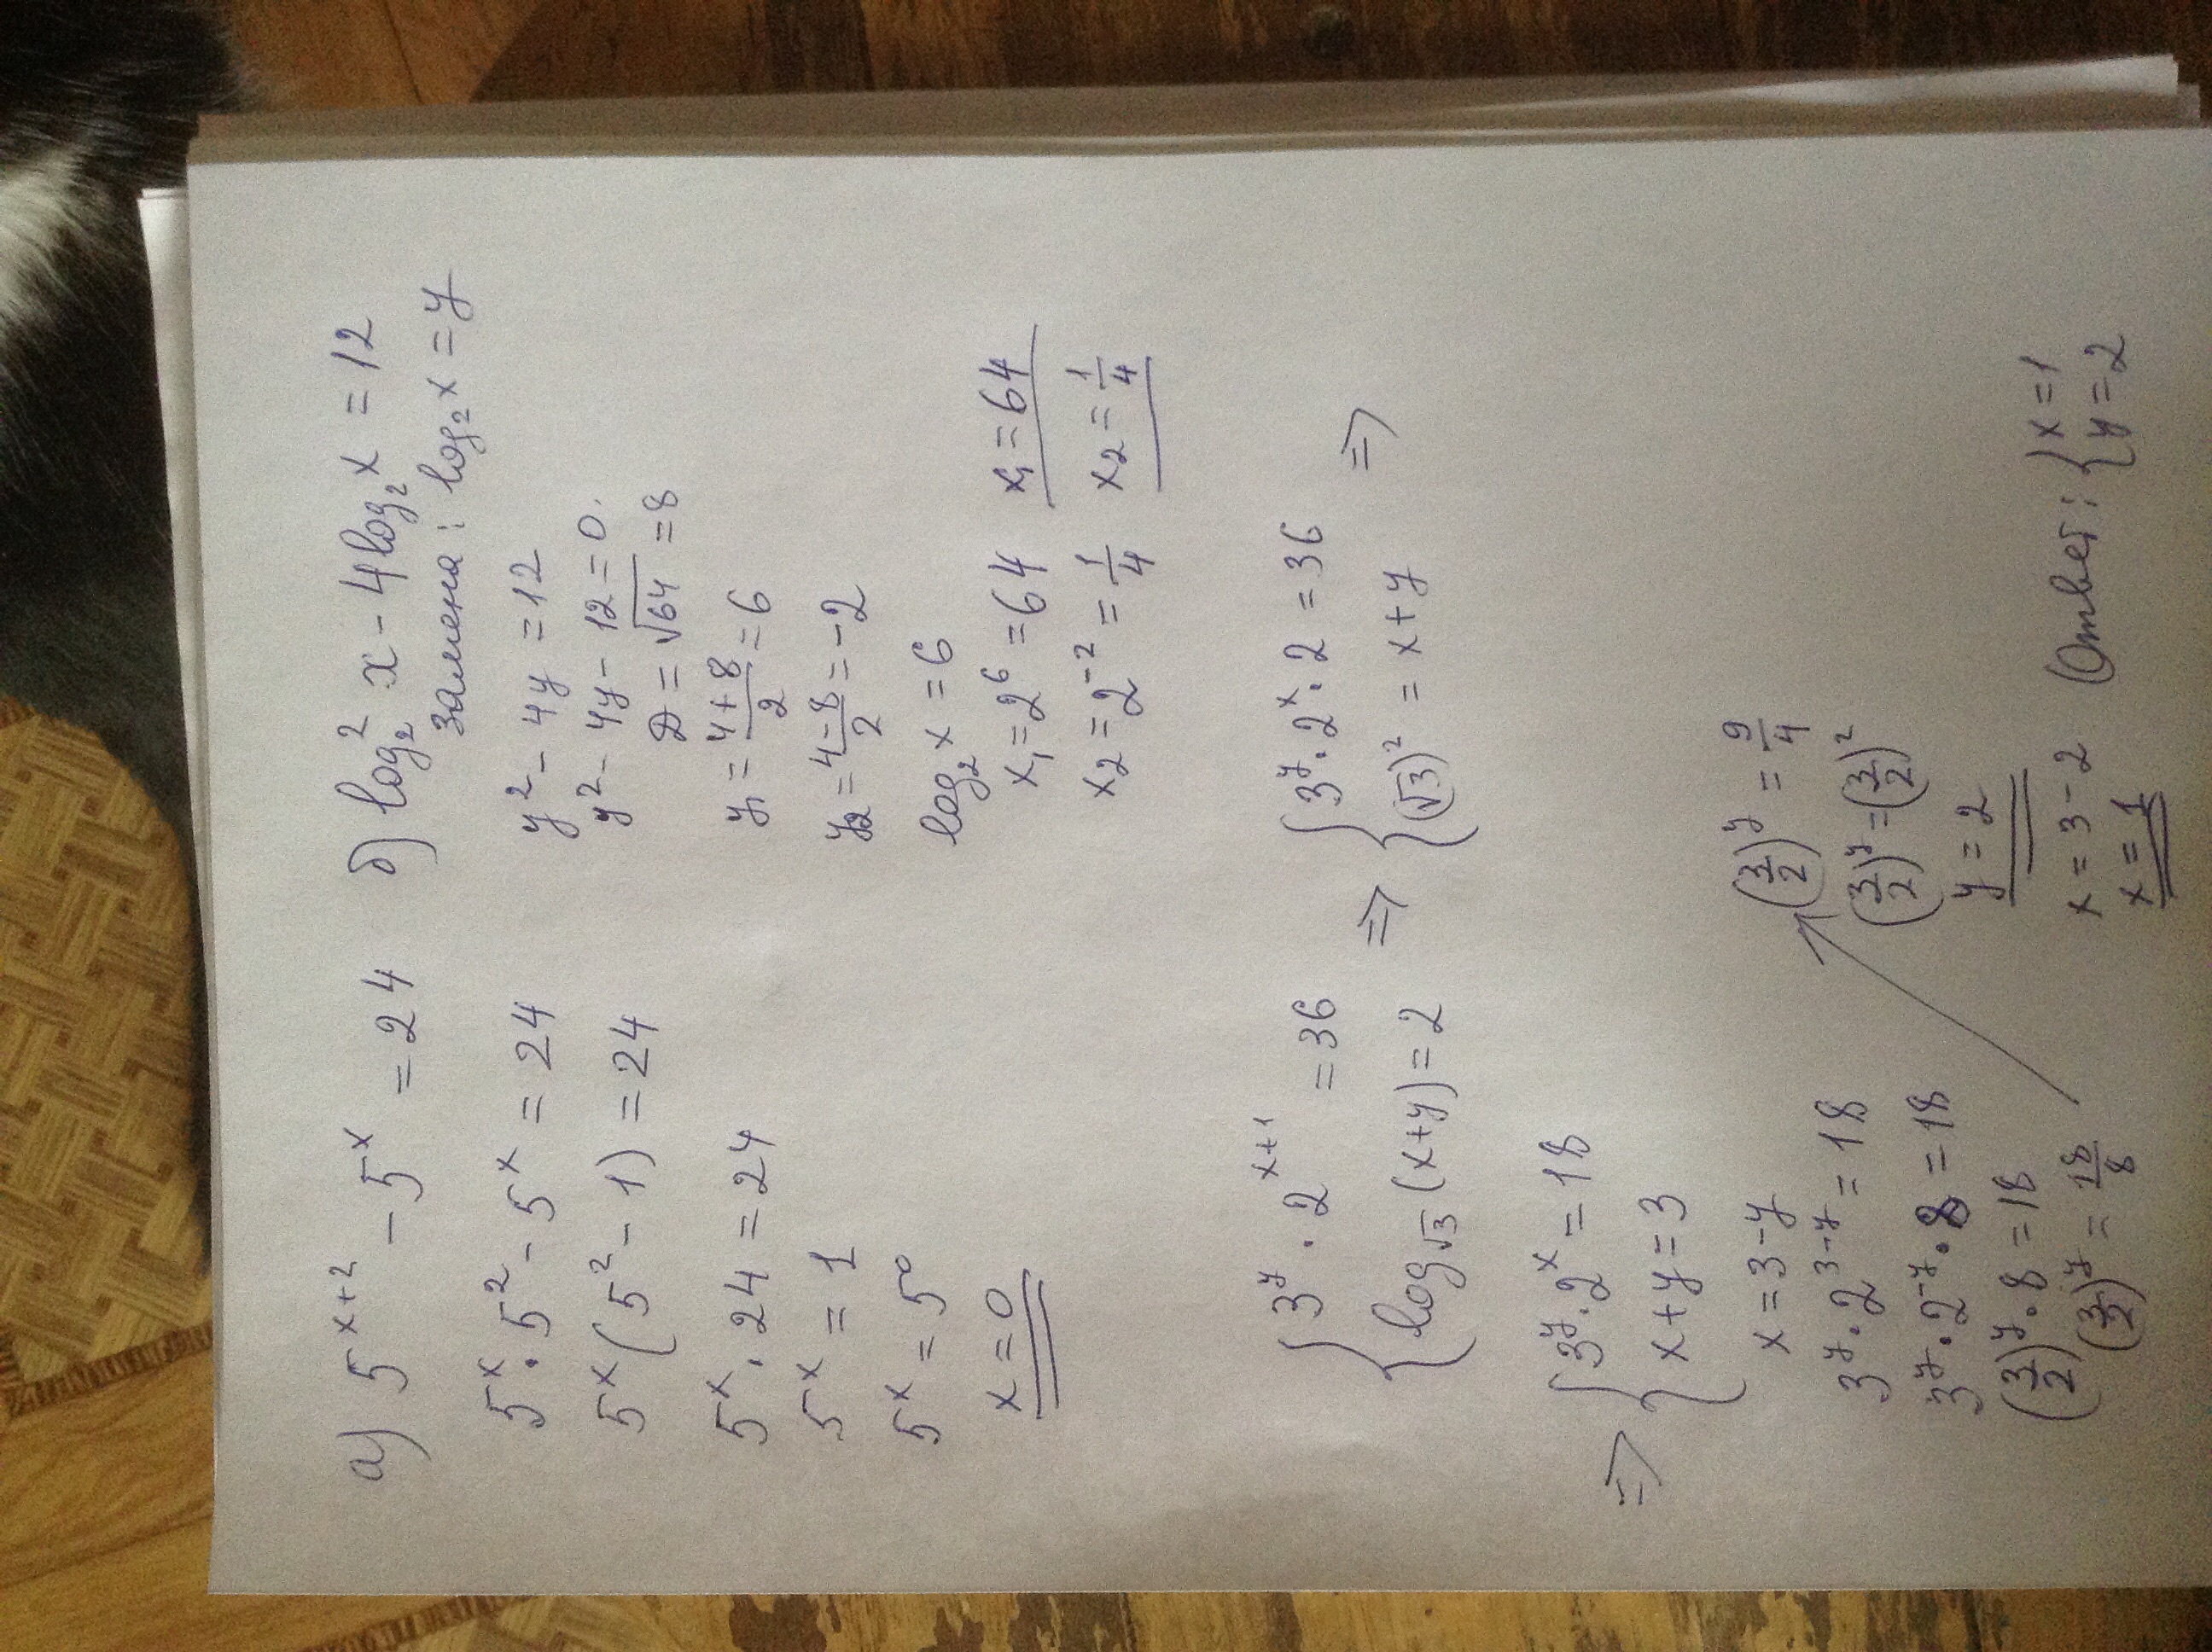 а) 5^{x+2} - 5^x = 24
5^x · 5^2 - 5^x = 24
5^x (5^2 - 1) = 24
5^x · 24 = 24
5^x = 1
5^x = 5^0
x = 0
б) log_2^2 x - 4 log_2 x = 12
замена: log_2 x = y
y^2 - 4y = 12
y^2 - 4y - 12 = 0.
D = √64 = 8
y_1 = \frac{4+8}{2} = 6
y_2 = \frac{4-8}{2} = -2
log_2 x = 6
x_1 = 2^6 = 64 x_1 = 64
x_2 = 2^{-2} = \frac{1}{4} x_2 = \frac{1}{4}
{ 3^y · 2^{x+1} = 36
{ log_{√3} (x+y) = 2
=> { 3^y · 2^x · 2 = 36
{ (√3)^2 = x+y =>
=> { 3^y · 2^x = 18
{ x+y = 3
x = 3-y
3^y · 2^{3-y} = 18
3^y · 2^{-y} · 8 = 18
(\frac{3}{2})^y · 8 = 18
(\frac{3}{2})^y = \frac{18}{8}
(\frac{3}{2})^y = \frac{9}{4}
(\frac{3}{2})^y = (\frac{3}{2})^2
y = 2
x = 3-2
x = 1
Ответ: { x = 1
{ y = 2